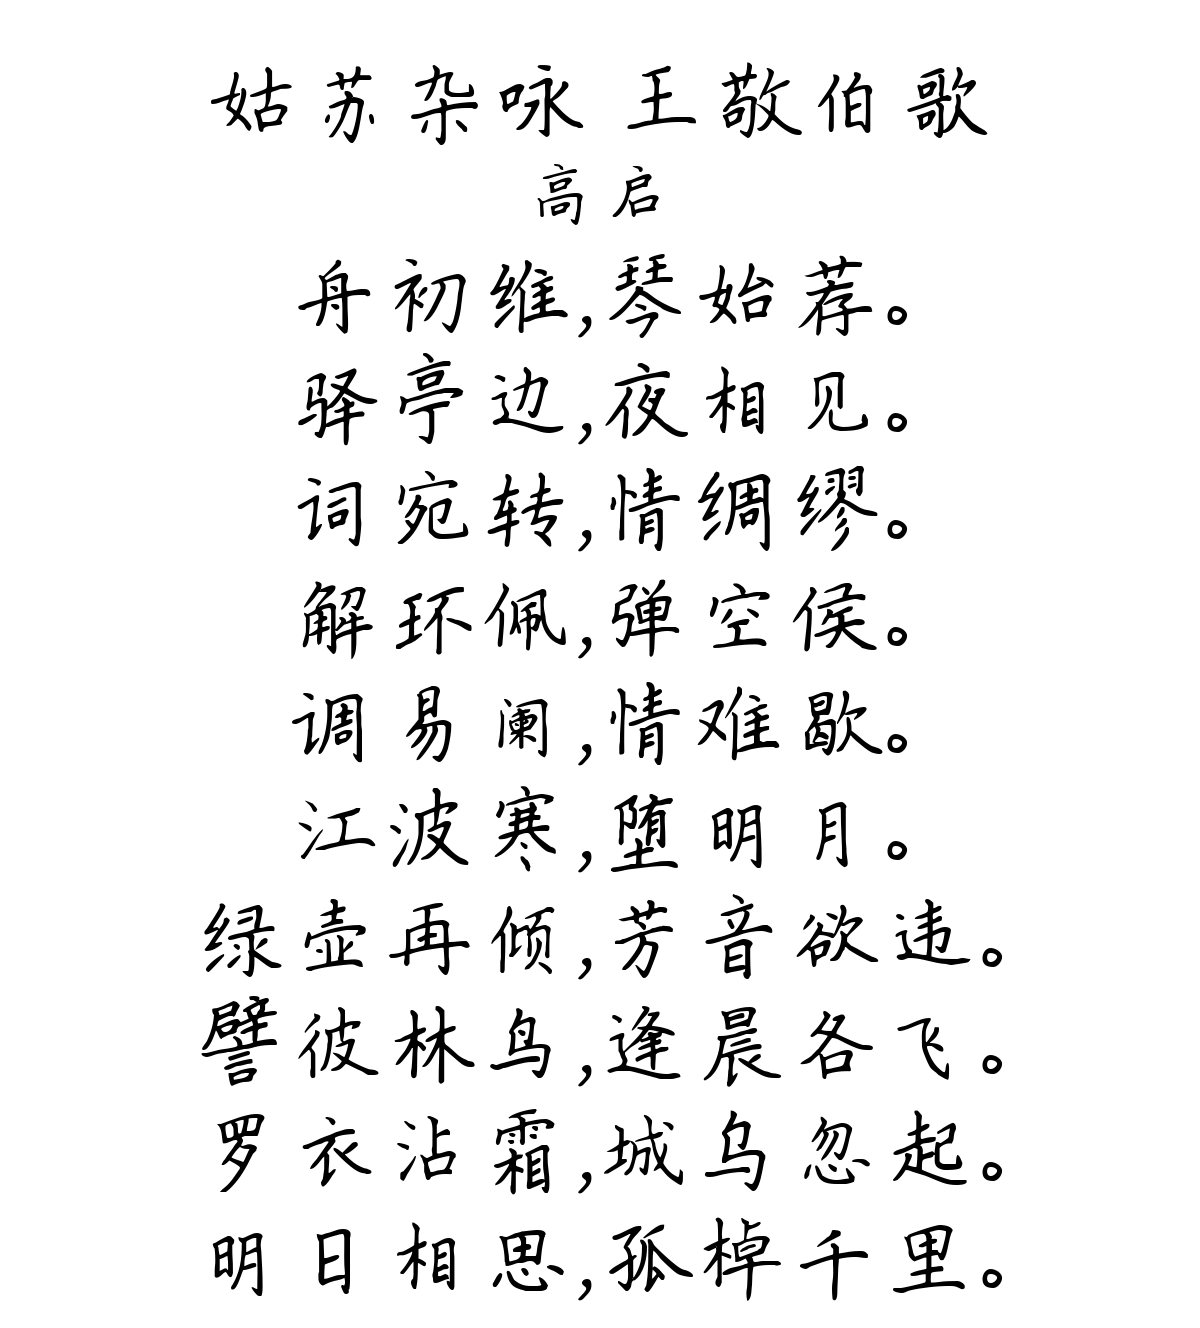 姑苏杂咏 王敬伯歌
高启
舟初维,琴始荐。
驿亭边,夜相见。
词宛转,情绸缪。
解环佩,弹空侯。
调易阑,情难歇。
江波寒,堕明月。
绿壶再倾,芳音欲违。
譬彼林鸟,逢晨各飞。
罗衣沾霜,城乌忽起。
明日相思,孤棹千里。